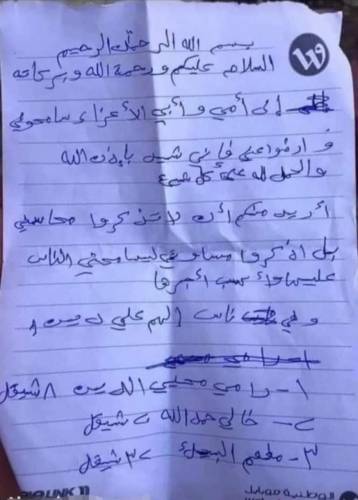 بسم الله الرحمن الرحيم
السلام عليكم ورحمة الله وبركاته
إلى أمي وأبي الأعزاء سامحوني
وادعوا لي فإني شهيد بإذن الله
والحمد لله على كل شيء
أريد منكم أن لا تذكروا محاسني
بل اذكروا مساوئي ليسامحني الناس
عليها
وفي ناس الهم علي دين ٨
١- رامي الدين ٨ شيقل
٢- خالي حمد الله ٢ شيقل
٣- مطعم ٢٣ شيقل
LINK
الوطنية موبايل